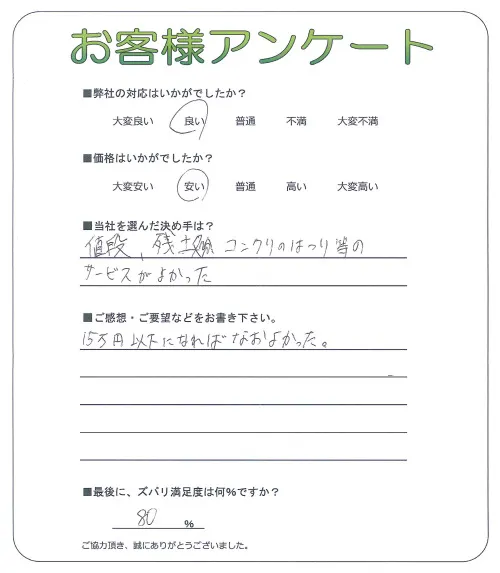 お客様アンケート
■弊社の対応はいかがでしたか？
大変良い 良い 普通 不満 大変不満
■価格はいかがでしたか？
大変安い 安い 普通 高い 大変高い
■当社を選んだ決め手は？
値段、残土処分 コンクリのはつり等の
サービスがよかった
■ご感想・ご要望などをお書き下さい。
15万円以下になればなおよかった。
■最後に、ズバリ満足度は何%ですか？
80 %
ご協力頂き、誠にありがとうございました。